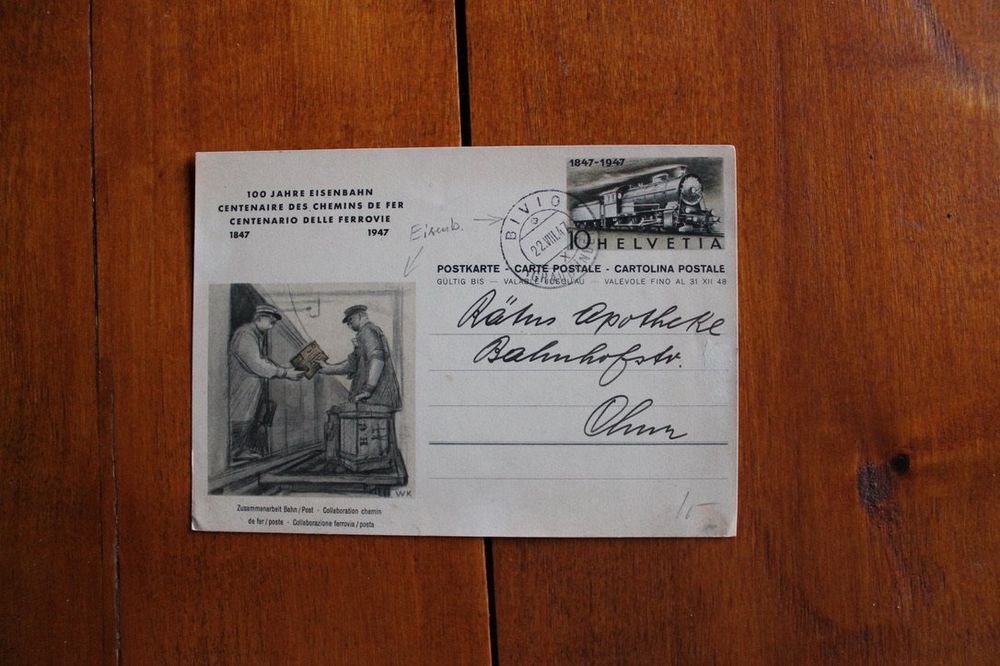 100 JAHRE EISENBAHN
CENTENAIRE DES CHEMINS DE FER
CENTENARIO DELLE FERROVIE
1847 1947
Eisenb.
1847-1947
10 HELVETIA
BIVIO
22.VIII.47
POSTKARTE - CARTE POSTALE - CARTOLINA POSTALE
GÜLTIG BIS — VALABLE JUSQU'AU — VALEVOLE FINO AL 31 XII 48
Rätus Apotheke
Bahnhofstr.
Chur
WK
Zusammenarbeit Bahn/Post · Collaboration chemin
de fer/poste · Collaborazione ferrovia/posta